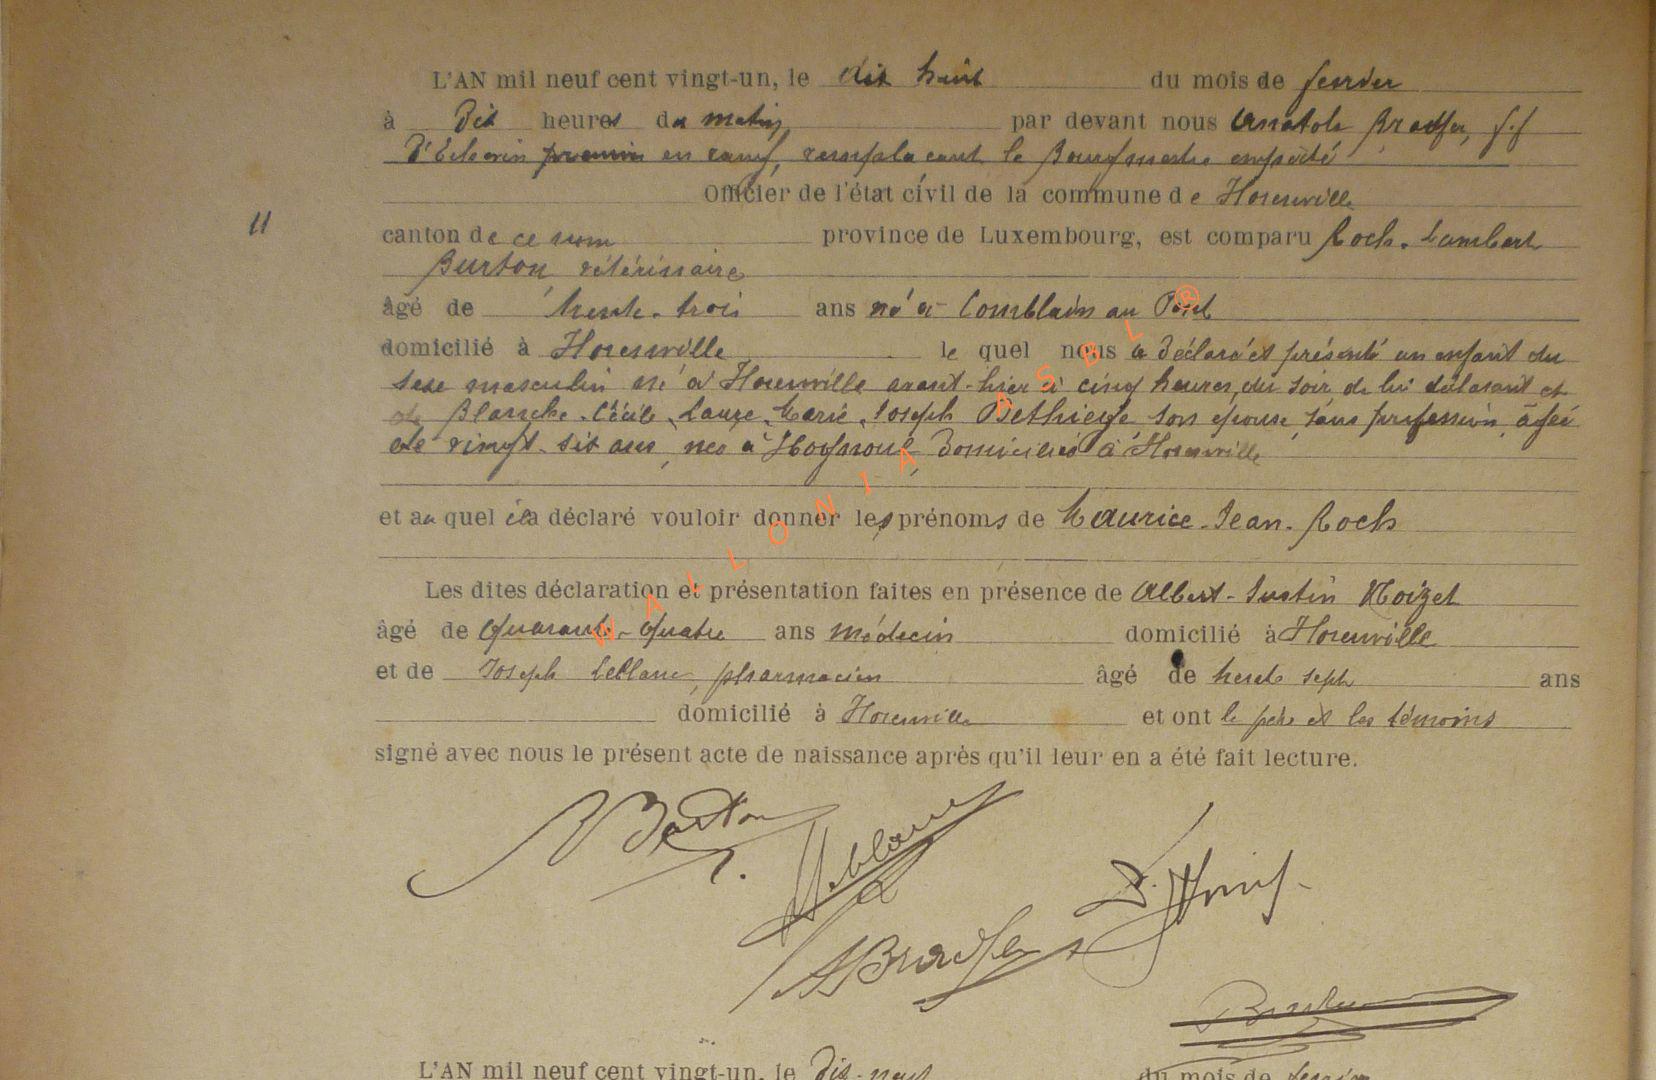 L'AN mil neuf cent vingt-un, le dix huit du mois de fevrier
à Dix heures du matin par devant nous Anatole f.f
D'Echevin premier en rang, remplacant le Bourgmestre empêché
Officier de l'état civil de la commune de Houmville
11
canton de ce nom province de Luxembourg, est comparu Roch. Lambert
Burton, vétérinaire
âgé de trente-trois ans né à Comblain au Pont
domicilié à le quel nous a déclaré et présenté un enfant du
sexe masculin né à avant-hier à cinq heures du soir, de lui déclarant et
de Blanche. Cécile, Laure, Marie, Joseph son épouse, sans profession, âgée
de vingt-six ans, née à domiciliée à
et au quel il a déclaré vouloir donner les prénoms de Maurice-Jean-Roch
Les dites déclaration et présentation faites en présence de Albert-Justin
âgé de quarante-quatre ans médecin domicilié à
et de Joseph Leblanc, pharmacien âgé de trente sept ans
domicilié à et ont le père et les témoins
signé avec nous le présent acte de naissance après qu'il leur en a été fait lecture.
Burton
Leblanc
L'AN mil neuf cent vingt-un, le Dix-neuf du mois de fevrier
WALLONIA ASBL ®